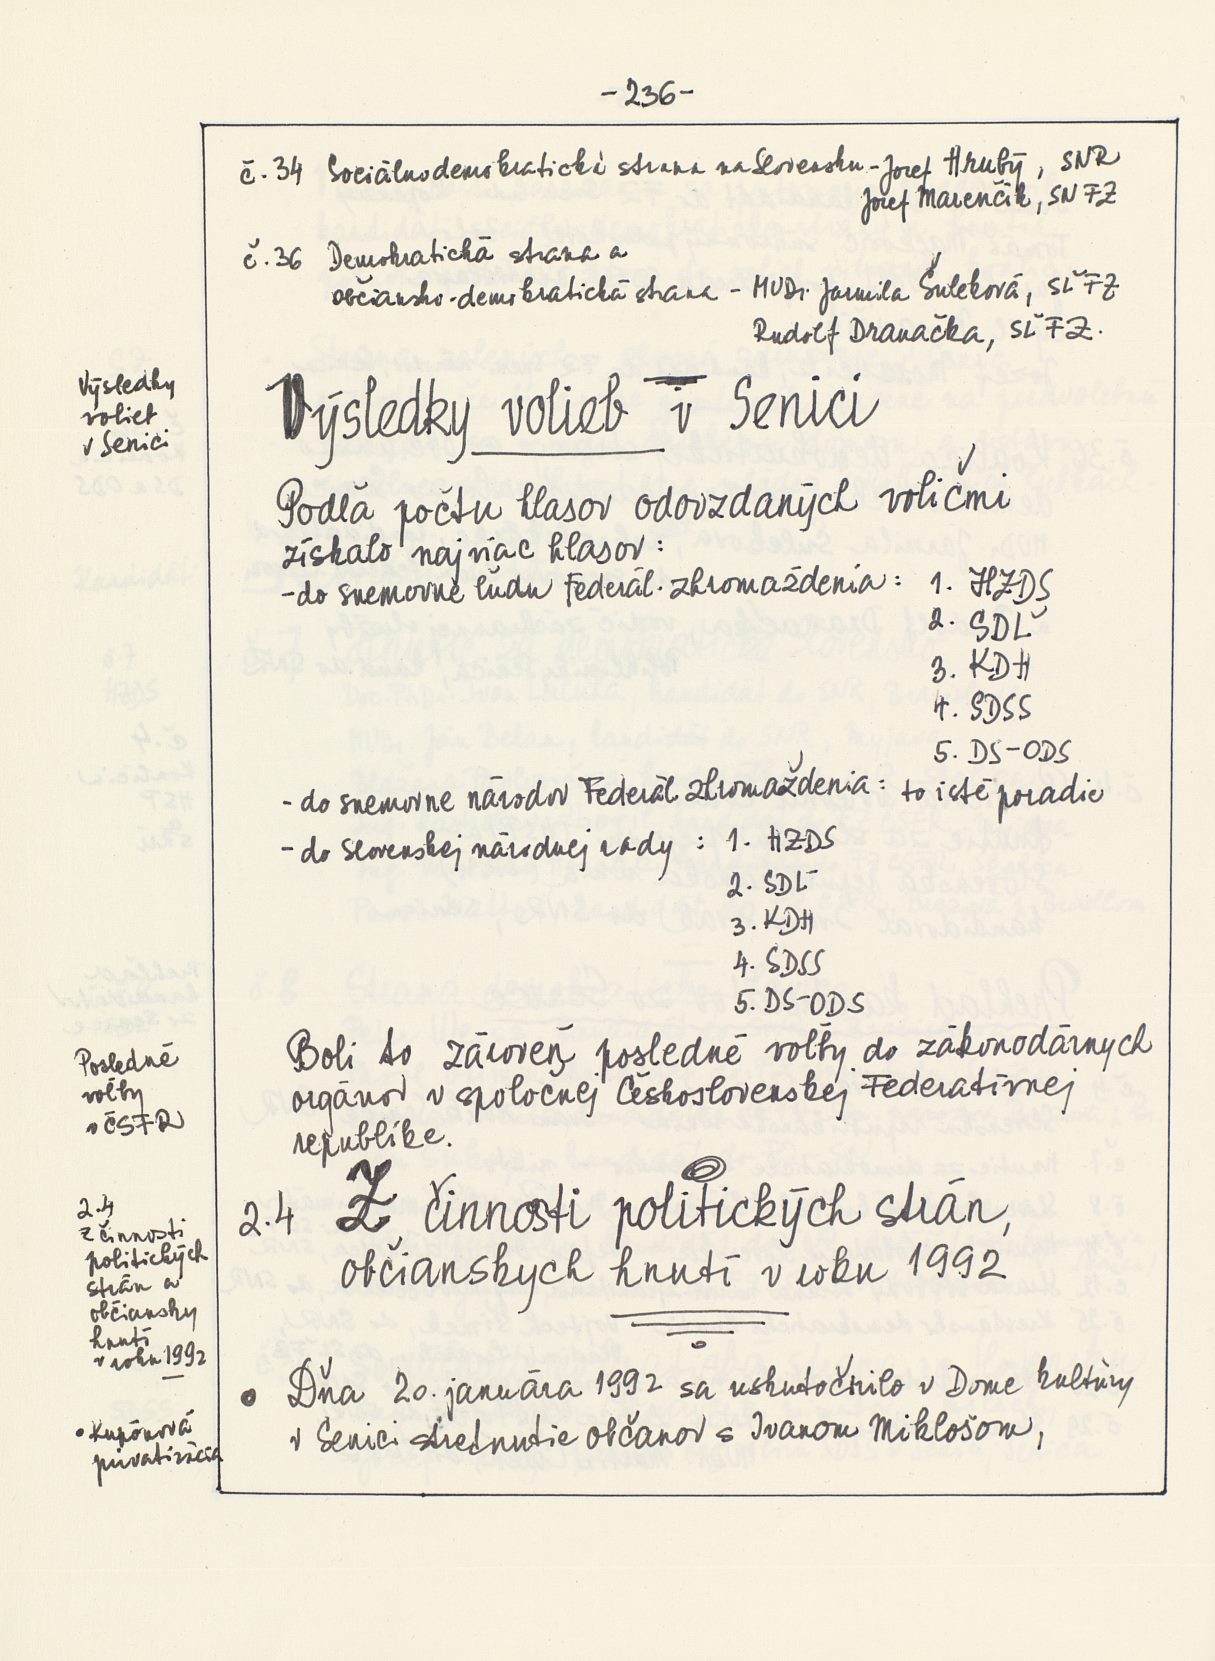 -236-
č.34 Sociálnodemokratická strana na Slovensku - Jozef Hrubý, SNR
Jozef Marenčík, SN FZ
č.36 Demokratická strana a
občiansko-demokratická strana - MUDr. Jarmila Šuleková, SĽ FZ
Rudolf Dranačka, SĽ FZ.
Výsledky
volieb
v Senici
Výsledky volieb v Senici
Podľa počtu hlasov odovzdaných voličmi
získalo najviac hlasov:
- do snemovne ľudu Federál. zhromaždenia: 1. HZDS
2. SDĽ
3. KDH
4. SDSS
5. DS-ODS
- do snemovne národov Federál. zhromaždenia: to isté poradie
- do Slovenskej národnej rady : 1. HZDS
2. SDĽ
3. KDH
4. SDSS
5. DS-ODS
Posledné
voľby
v ČSFR
Boli to zároveň posledné voľby do zákonodárnych
orgánov v spoločnej Československej Federatívnej
republike.
2.4
z činnosti
politických
strán a
občiansky
hnutí
v roku 1992
2.4 Z činnosti politických strán,
občianskych hnutí v roku 1992
• Dňa 20. januára 1992 sa uskutočnilo v Dome kultúry
v Senici stretnutie občanov s Ivanom Miklošom,
• Kupónová
privatizácia